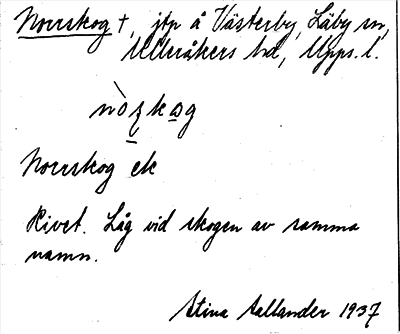 Norrskog †, jtp å Västerby, Läby sn,
Ulleråkers hd, Upps. l.
nò̱ʐkog
Norrskog ek
Rivet. Låg vid skogen av samma
namn.
Stina Hallander 1937